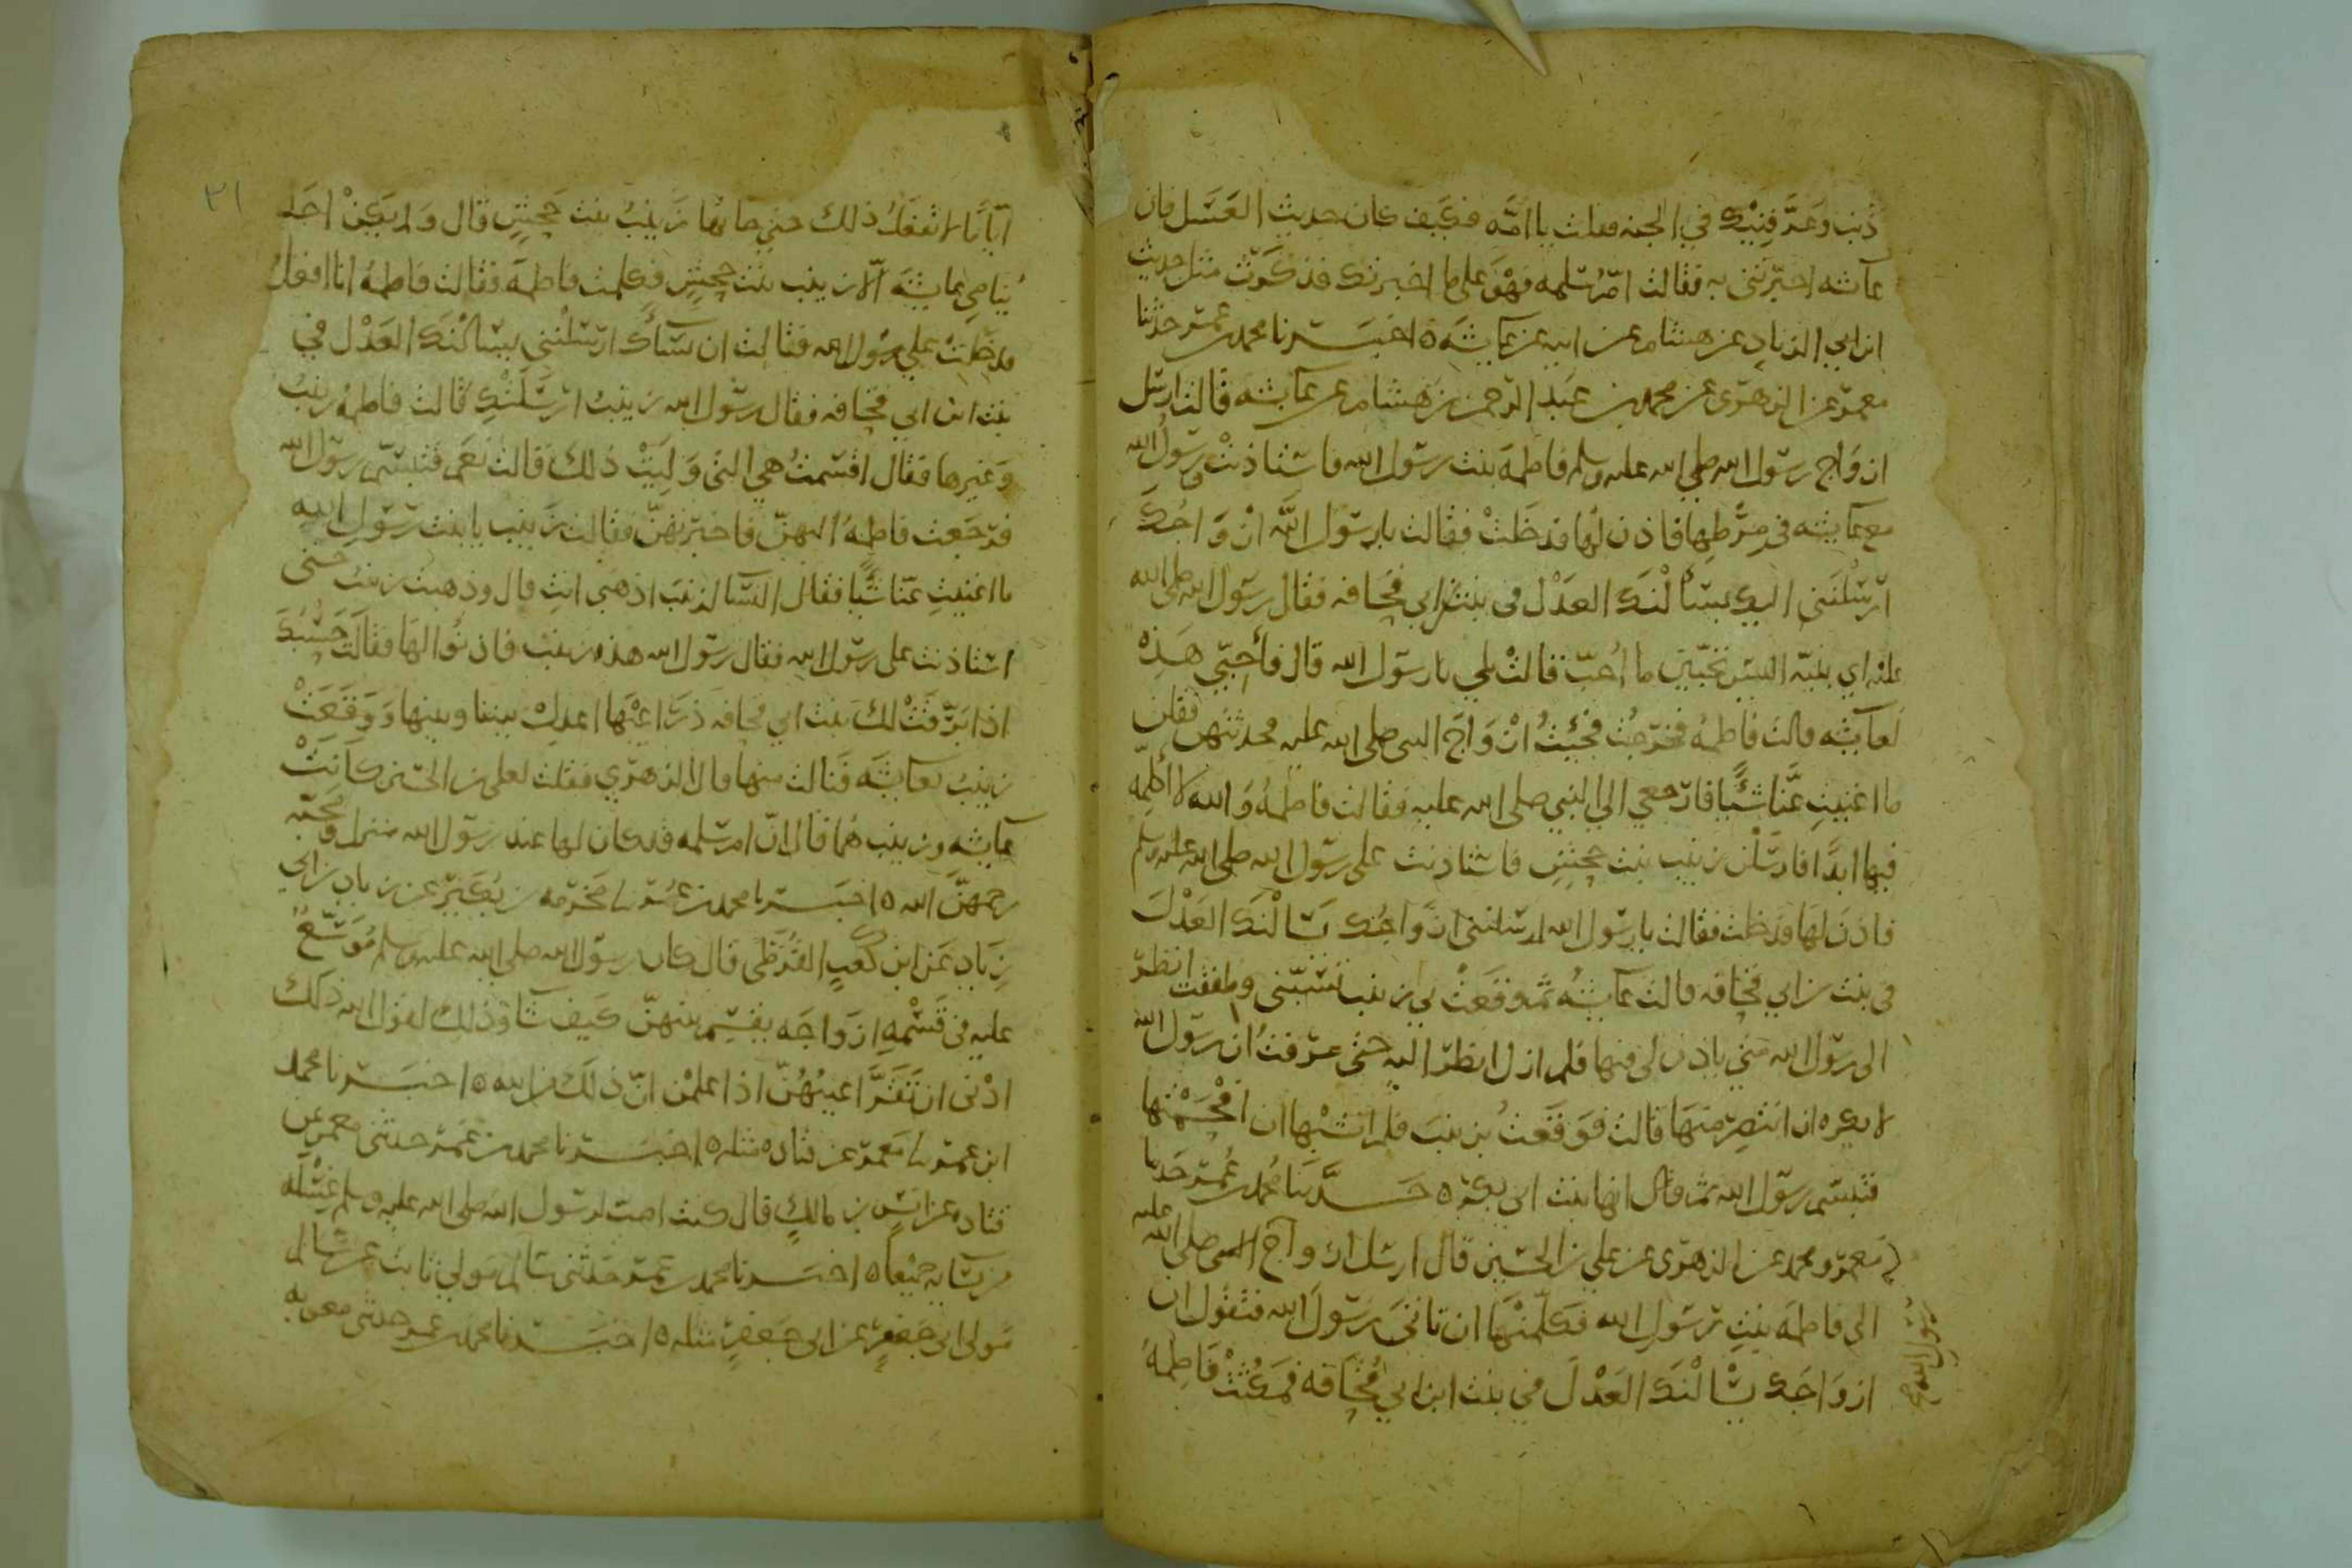 ذنب وعرفنيك في الجنه فقلت يا امّه فكيف كان حديث العسل فان
عائشه اخبرتني به فقالت امّ سلمه فهو على ما اخبرتك فذكرت مثل حديث
ابن ابي الزناد عن هشام عن ابيه عن عائشه ٥ اخبرنا محمد بن عمر حدثنا
معمر عن الزهري عن محمد بن عبد الرحمن بن هشام عن عائشه قالت ارسل
ازواج رسول الله صلى الله عليه وسلم فاطمة بنت رسول الله فاستاذنت ورسول الله
مع عائشه في مرطها فاذن لها فدخلت فقالت يا رسول الله ان ازواجك
ارسلنني اليك يسألنك العدل في بنت ابي قحافه فقال رسول الله صلى الله
عليه اي بنيّه اليس تحبّين ما أُحبّ قالت بلى يا رسول الله قال فأحبّي هذه
لعائشه قالت فاطمة فخرجت فجئت ازواج النبي صلى الله عليه فحدثتهن فقلن
ما اغنيتِ عنّا شيًا فارجعي الى النبي صلى الله عليه فقالت فاطمة والله لا أكلمه
فيها ابدًا فارسلن زينب بنت جحش فاستاذنت على رسول الله صلى الله عليه وسلم
فاذن لها فدخلت فقالت يا رسول الله ارسلنني ازواجك يسالنك العدل
في بنت ابن ابي قحافه قالت عائشه ثم وقعت بي زينب تسبّني وطفقت انظر
الى رسول الله متى ياذن لي فيها فلم ازل انظر اليه حتى عرفت ان رسول الله
لا يكره ان انتصر منها قالت فوقعت بزينب فلم انشبها ان افحمتها
فتبسم رسول الله ثم قال انها بنت ابي بكر ٥ حدثنا محمد بن عمر حدثنا
معمر ومحمد عن الزهري عن علي بن الحسين قال ارسل ازواج النبي صلى الله عليه
الى فاطمة بنت رسول الله فكلّمنها ان تاتي رسول الله فتقول ان
ازواجك يسالنك العدل في بنت ابن ابي قحافه فمكثت فاطمة
٣١
ايّامًا لا تفعل ذلك حتى جاتها زينب بنت جحش قال ولم يكن احد
يناصي عايشه الّا زينب بنت جحش فكلمت فاطمة فقالت فاطمة انا افعل
فدخلت على رسول الله فقالت ان نساك ارسلنني يسالنك العدل في
بنت ابن ابي قحافه فقال رسول الله زينب ارسلتك قالت فاطمة زينب
وغيرها فقال اقسمت هي التي وليت ذلك قالت نعم فتبسّم رسول الله
فرجعت فاطمة اليهنّ فاخبرتهنّ فقالت زينب يا بنت رسول الله
ما اغنيتِ عنّا شيًا فقال النسا لزينب اذهبي انتِ قال وذهبت زينب حتى
استاذنت على رسول الله فقال رسول الله هذه زينب فاذنوا لها فقالت حسبك
اذا برقت لك بنت ابي قحافه ذراعيها اعدل بيننا وبينها ووقعت
زينب بعائشه فنالت منها قال الزهري فقلت لعلي بن الحسين كانت
عائشه وزينب هما قال انّ ام سلمه قد كان لها عند رسول الله منزله ومحبّه
رحمهنّ الله ٥ اخبرنا محمد بن عمر نا مخرمه بن بكير عن زياد بن ابي
زياد عن ابن كعب القرظي قال كان رسول الله صلى الله عليه وسلم موسّع
عليه في قسمه ازواجه يقسم بينهنّ كيف شا وذلك لقول الله ذلك
ادنى ان تقرّ اعينهنّ اذا علمن انّ ذلك من الله ٥ اخبرنا محمد
ابن عمر نا معمر عن قتاده مثله ٥ اخبرنا محمد بن عمر حدثني معمر عن
قتاده عن انس بن مالك قال كنت اصب لرسول الله صلى الله عليه وسلم غسله
من نسايه جميعا ٥ اخبرنا محمد بن عمر حدثني سالم مولى ثابت عن سالم
مولى ابي جعفر عن ابي جعفر مثله ٥ اخبرنا محمد بن عمر حدثني معويه